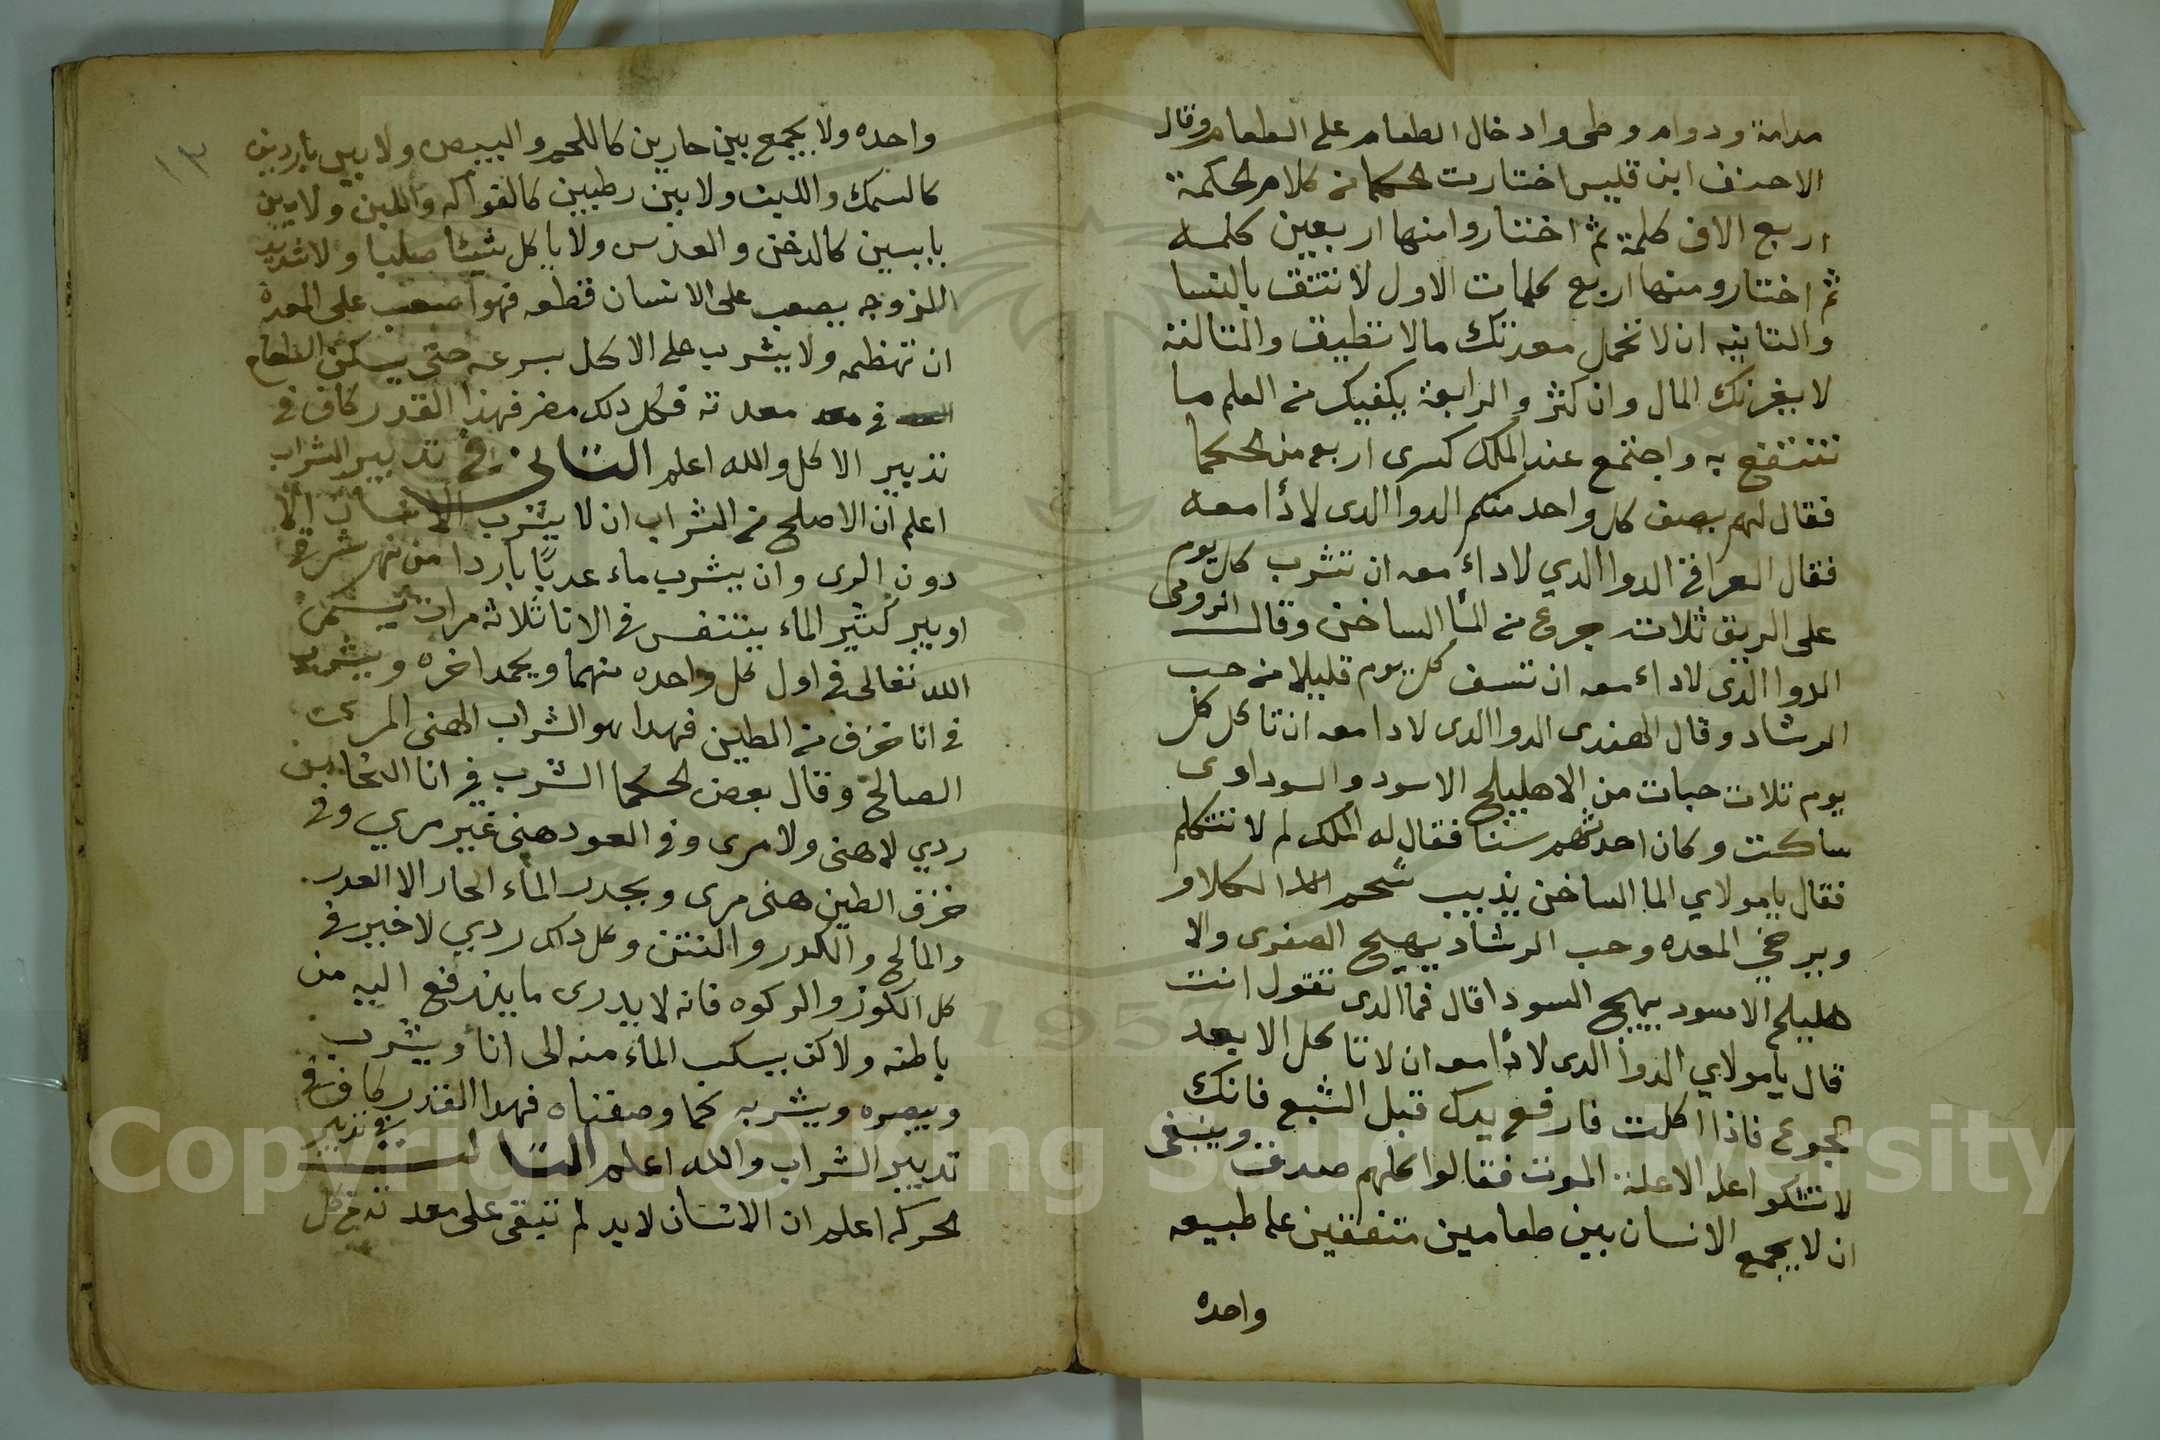 مدامة ودوام وطى وادخال الطعام على الطعام وقال
الاحنف ابن قليس اختارت الحكما من كلام الحكمة
اربع الاف كلمة ثم اختاروا منها اربعين كلمه
ثم اختارو منها اربع كلمات الاول لا تتق بالنسا
والثانيه ان لا تحمل معدتك مالا تطيق والثالثة
لا يغرنك المال وان كثر والرابعة يكفيك من العلم ما
تنتفع به واجتمع عند الملك كسرى اربع من الحكما
فقال لهم يصف كل واحد منكم الدوا الدى لادأ معه
فقال العراقي الدوا الدي لا داء معه ان تشرب كل يوم
على الريق ثلاث جرع من المأ الساخن وقال الرومى
الدوا الذى لا داء معه ان تسف كل يوم قليلا من حب
الرشاد وقال الهندى الدوا الدى لا دا معه ان تاكل كل
يوم تلات حبات من الاهليلج الاسود والسوداوى
ساكت وكان احدثهم سنا فقال له الملك لم لا تتكلم
فقال يا مولاي الما الساخن يذيب شحم الكلاو
ويرخي المعده وحب الرشاد يهيج الصفرى والا
هليلج الاسود يهيج السودا قال فما الدى تقول انت
قال يا مولاي الدوا الدى لا دأ معه ان لا تاكل الا بعد
الجوع فاذا اكلت فارفع يدك قبل الشبع فانك
لا تشكوا عله الا علة الموت فقالوا كلهم صدقت وينبغى
ان لا يجمع الانسان بين طعامين متفقين على طبيعه
واحده
١٣
واحده ولا يجمع بين حارين كاللحم والبيض ولا بين باردين
كالسمك واللبن ولا بين رطبين كالفواكه واللبن ولا بين
يابسين كالدخن والعدس ولا ياكل شيئا صلبا ولا شديد
اللزوجه يصعب على الانسان قطعه فهوا صعب على المعدة
ان تهظمه ولا يشرب على الاكل بسرعه حتى يسكن الطعام
في معدته فكل دلك مضر فهذا القدر كاف في
تدبير الاكل والله اعلم الثانى في تدبير الشراب
اعلم ان الاصلح من الشراب ان لا يشرب الانسان الا
دون الرى وان يشرب ماء عدبًا باردا من نهر شرقي
او بير كثير الماء يتنفس في الانا ثلاثه مرات يسمى
الله تعالى في اول كل واحده منهما ويحمد اخره ويشرب
في انا خزف من الطين فهدا هو الشراب الهنى المرى
الصالح وقال بعض الحكما الشرب في انا النحاس
ردي لا هنى ولا مرى وفي العود هنى غير مري وفي
خزف الطين هنى مرى ويحدر الماء الحار الا العدر
والمالح والكدر والنتن وكل داك ردي لا خير في
كل الكوز والركوه فانه لا يدرى ما يندفع اليه من
باطنه ولاكن يسكب الماء منه الى اناء ويشرب
ويبصره ويشربه كما وصفناه فهدا القدر كاف في
تدبير الشراب والله اعلم الثالث في تدبير
الحركه اعلم ان الانسان لا بد لم تبقى على معدته في كل